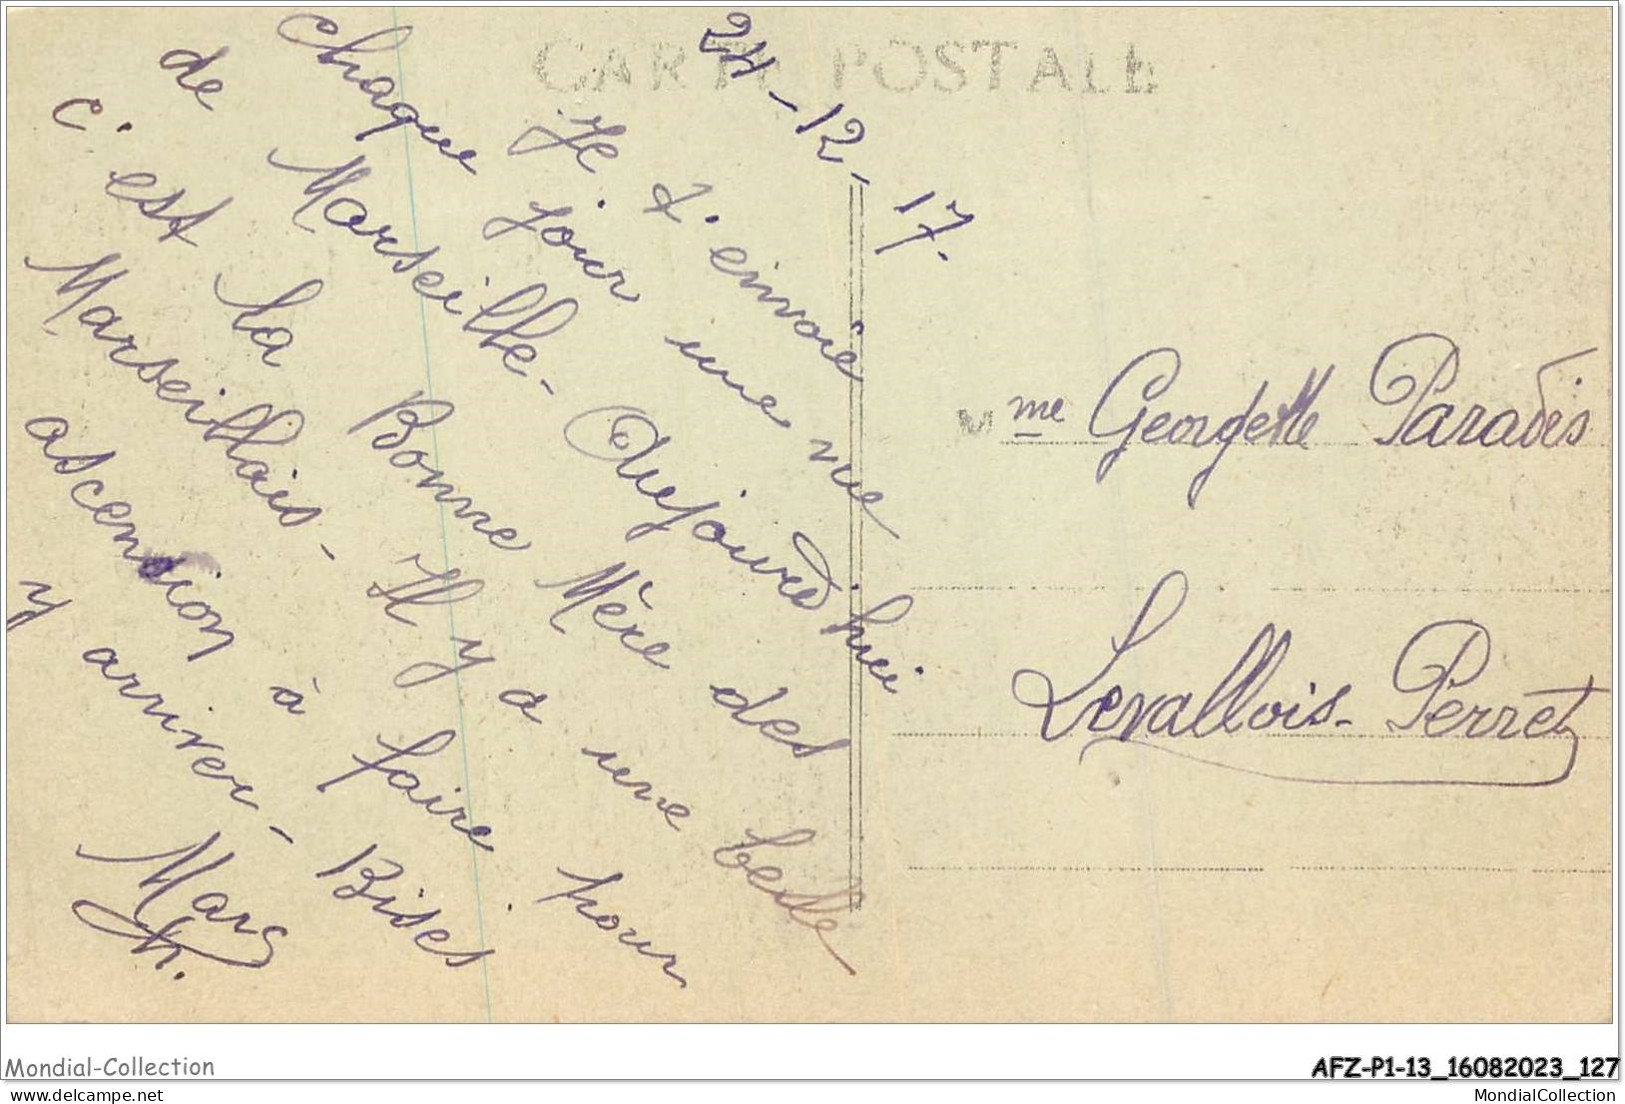 CARTE POSTALE
24-12-17.
Je t'envoie
chaque jour une vue
de Marseille - Aujourd'hui
c'est la Bonne Mère des
Marseillais - Il y a une belle
ascension à faire pour
y arriver - Bises
Marg
Ch.
Mme Georgette Paradis
Levallois-Perret
Mondial-Collection
AFZ-P1-13_16082023_127
delcampe.net
MondialCollection